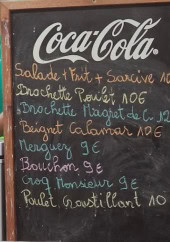 Coca-Cola
Salade + Frit + Saucive 10
Brochette Poulet 10€
Brochette Magret de C 12
Beignet Calamar 10€
Merguez 9€
Bouchon 9€
Croq Monsieur 9€
Poulet Croustillant 10